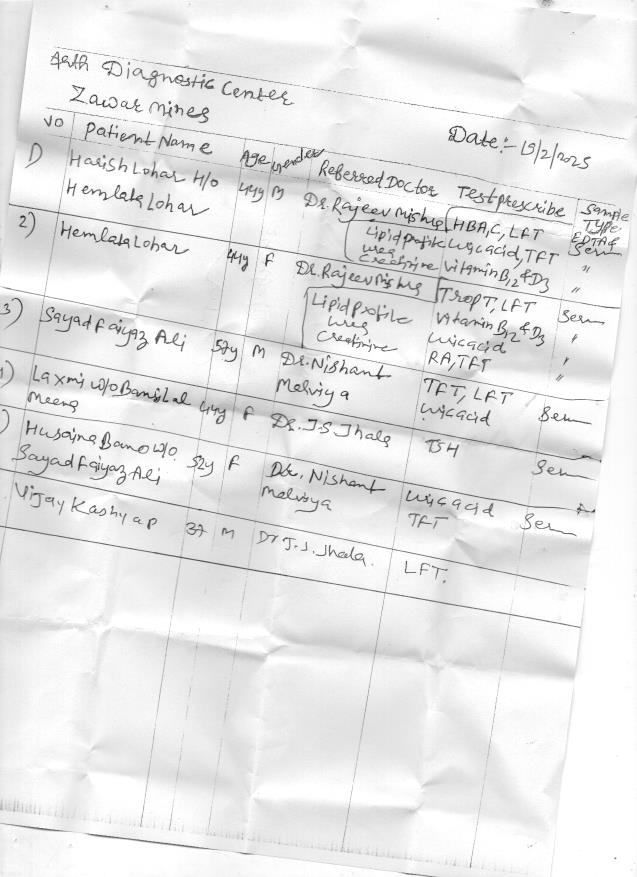 Arth Diagnostic Center
Zawar Mines
Date:- 19/2/2025
NO Patient Name Age Gender Referred Doctor Test prescribe Sample Type
1) Harish Lohar H/O 44y M Dr. Rajeev Mishra HBA,C, LFT EDTA &
Hemlata Lohar Lipid profile uric acid, TFT Serum
urea creatinine vitamin B12 & D3 "
"
2) Hemlata Lohar 44y F Dr. Rajeev Mishra Trop T, LFT Serum
Lipid profile vitamin B12 & D3 "
urea uric acid "
creatinine RA, TFT "
3) Sayad Faiyaz Ali 57y M Dr. Nishant TFT, LFT Serum
Malviya uric acid
) Laxmi w/o Bansilal 44y F Dr. J.S Jhala TSH Serum
Meena
) Husaina Bano w/o. 52y F Dr. Nishant uric acid Serum
Sayad Faiyaz Ali Malviya TFT
Vijay Kashyap 37 M Dr J.S. Jhala. LFT.